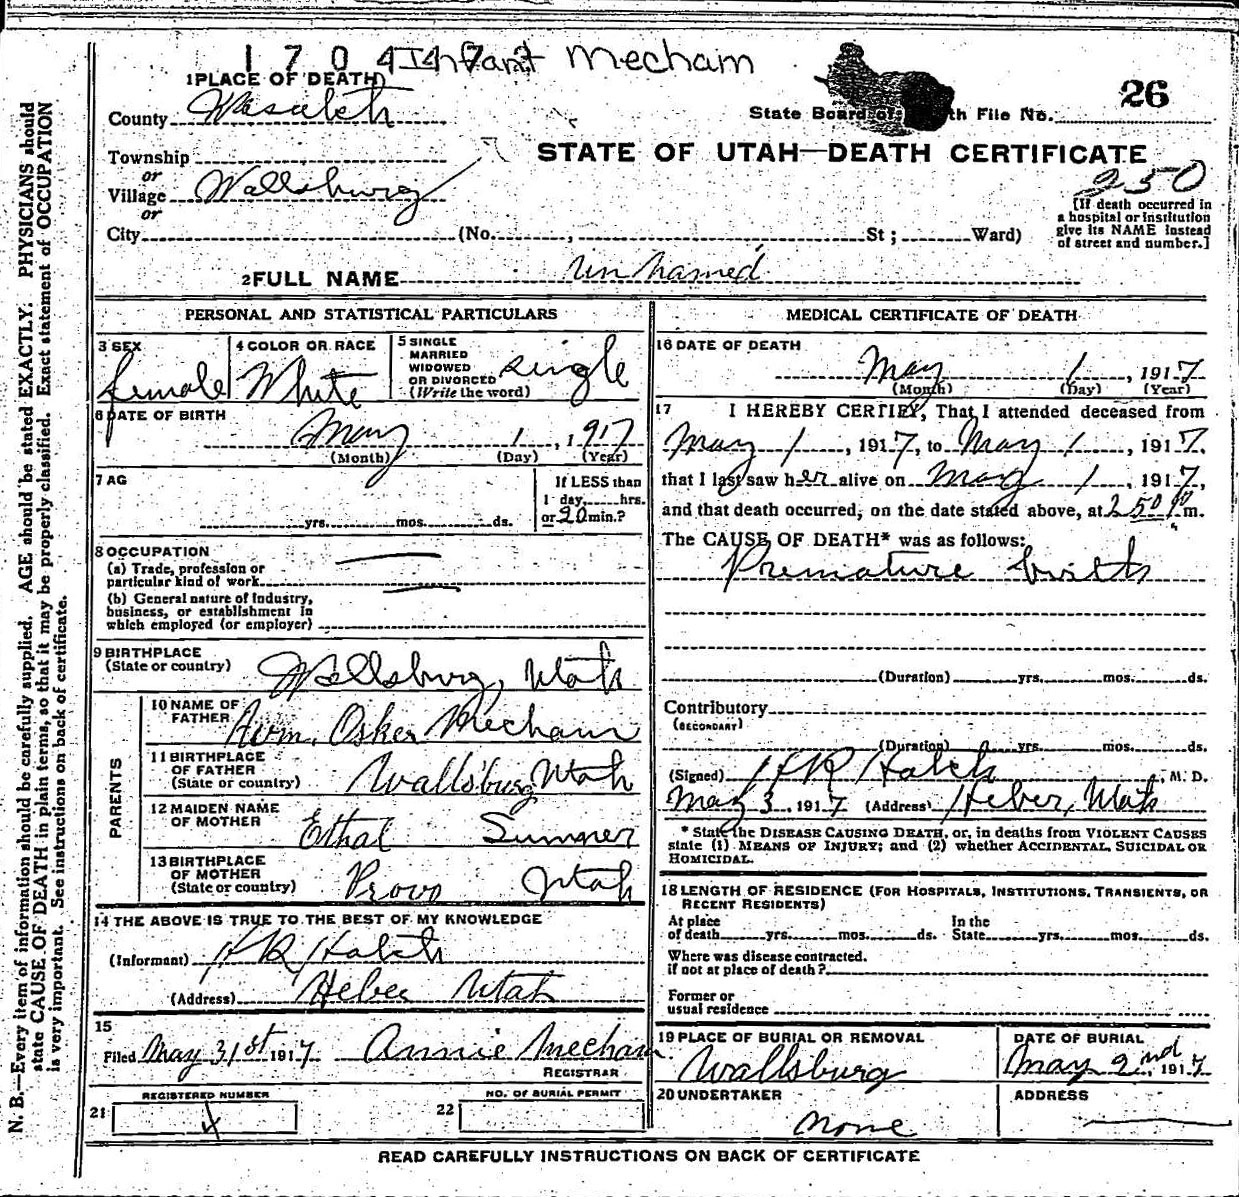 1 7 0 4 Infant Mecham
1 PLACE OF DEATH
County Wasatch
State Board of th File No. 26
Township
or
STATE OF UTAH—DEATH CERTIFICATE
Village Wallsburg
250
or
[If death occurred in
a hospital or institution
give its NAME instead
of street and number.]
City (No. , St ; Ward)
2 FULL NAME Un named
PERSONAL AND STATISTICAL PARTICULARS
3 SEX female
4 COLOR OR RACE White
5 SINGLE
MARRIED
WIDOWED
OR DIVORCED
(Write the word) single
6 DATE OF BIRTH
May 1, 1917
(Month) (Day) (Year)
7 AG
yrs. mos. ds.
If LESS than
1 day, hrs.
or 20 min.?
8 OCCUPATION
(a) Trade, profession or
particular kind of work
(b) General nature of Industry,
business, or establishment in
which employed (or employer)
9 BIRTHPLACE
(State or country) Wallsburg, Utah
PARENTS
10 NAME OF
FATHER Wm. Osker Mecham
11 BIRTHPLACE
OF FATHER
(State or country) Wallsburg Utah
12 MAIDEN NAME
OF MOTHER Ethal Sumner
13 BIRTHPLACE
OF MOTHER
(State or country) Provo Utah
14 THE ABOVE IS TRUE TO THE BEST OF MY KNOWLEDGE
(Informant) H R Hatch
(Address) Heber Utah
15
Filed May 31st 1917 Annie Mecham
REGISTRAR
REGISTERED NUMBER
21 4
NO. OF BURIAL PERMIT
22
MEDICAL CERTIFICATE OF DEATH
16 DATE OF DEATH
May 1, 1917
(Month) (Day) (Year)
17 I HEREBY CERTIFY, That I attended deceased from
May 1, 1917, to May 1, 1917.
that I last saw her alive on May 1, 1917,
and that death occurred, on the date stated above, at 2 50 P m.
The CAUSE OF DEATH* was as follows:
Premature birth
(Duration) yrs. mos. ds.
Contributory
(SECONDARY)
(Duration) yrs. mos. ds.
(Signed) H R Hatch, M. D.
May 3, 1917 (Address) Heber, Utah
* State the DISEASE CAUSING DEATH, or, in deaths from VIOLENT CAUSES
state (1) MEANS OF INJURY; and (2) whether ACCIDENTAL, SUICIDAL OR
HOMICIDAL.
18 LENGTH OF RESIDENCE (FOR HOSPITALS, INSTITUTIONS, TRANSIENTS, OR
RECENT RESIDENTS)
At place
of death yrs. mos. ds.
In the
State yrs. mos. ds.
Where was disease contracted.
if not at place of death?
Former or
usual residence
19 PLACE OF BURIAL OR REMOVAL
Wallsburg
DATE OF BURIAL
May 2nd, 1917
20 UNDERTAKER
None
ADDRESS
READ CAREFULLY INSTRUCTIONS ON BACK OF CERTIFICATE
N. B.—Every item of information should be carefully supplied. AGE should be stated EXACTLY. PHYSICIANS should
state CAUSE OF DEATH in plain terms, so that it may be properly classified. Exact statement of OCCUPATION
is very important. See instructions on back of certificate.